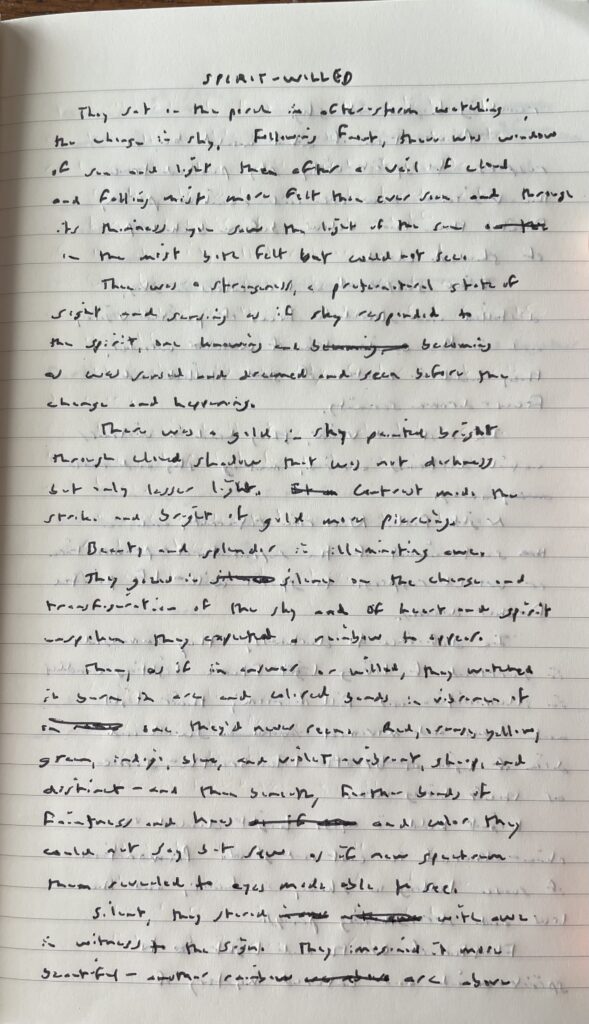 SPIRIT-WILLED
They sat on the porch in after-storm watching
the change in sky. Following front, there was window
of sun and light, then after a veil of cloud
and falling mist more felt than ever seen and through
its thinness you saw the light of the sun
in the mist both felt but could not see.
There was a strangeness, a preternatural state of
sight and sensing as if sky responded to
the spirit, one knowing and becoming
as was sensed and dreamed and seen before the
change and happening.
There was a gold in sky painted bright
through cloud shadow that was not darkness
but only lesser light. Contrast made the
strike and bright of gold more piercing.
Beauty and splendor in illuminating awe.
They gazed in silence on the change and
transfiguration of the sky and of heart and spirit
unspoken they expected a rainbow to appear.
Then, as if in answer or willed, they watched
it burn in arc and colored bands in vibrance of
one they'd never seen. Red, orange, yellow,
green, indigo, blue, and violet - vibrant, sharp, and
distinct - and then beneath, further bands of
faintness and hues and color they
could not say but saw as if new spectrum
then revealed to eyes made able to see.
Silent, they stared with awe
in witness to the sign. They imagined it more
beautiful - another rainbow arc above